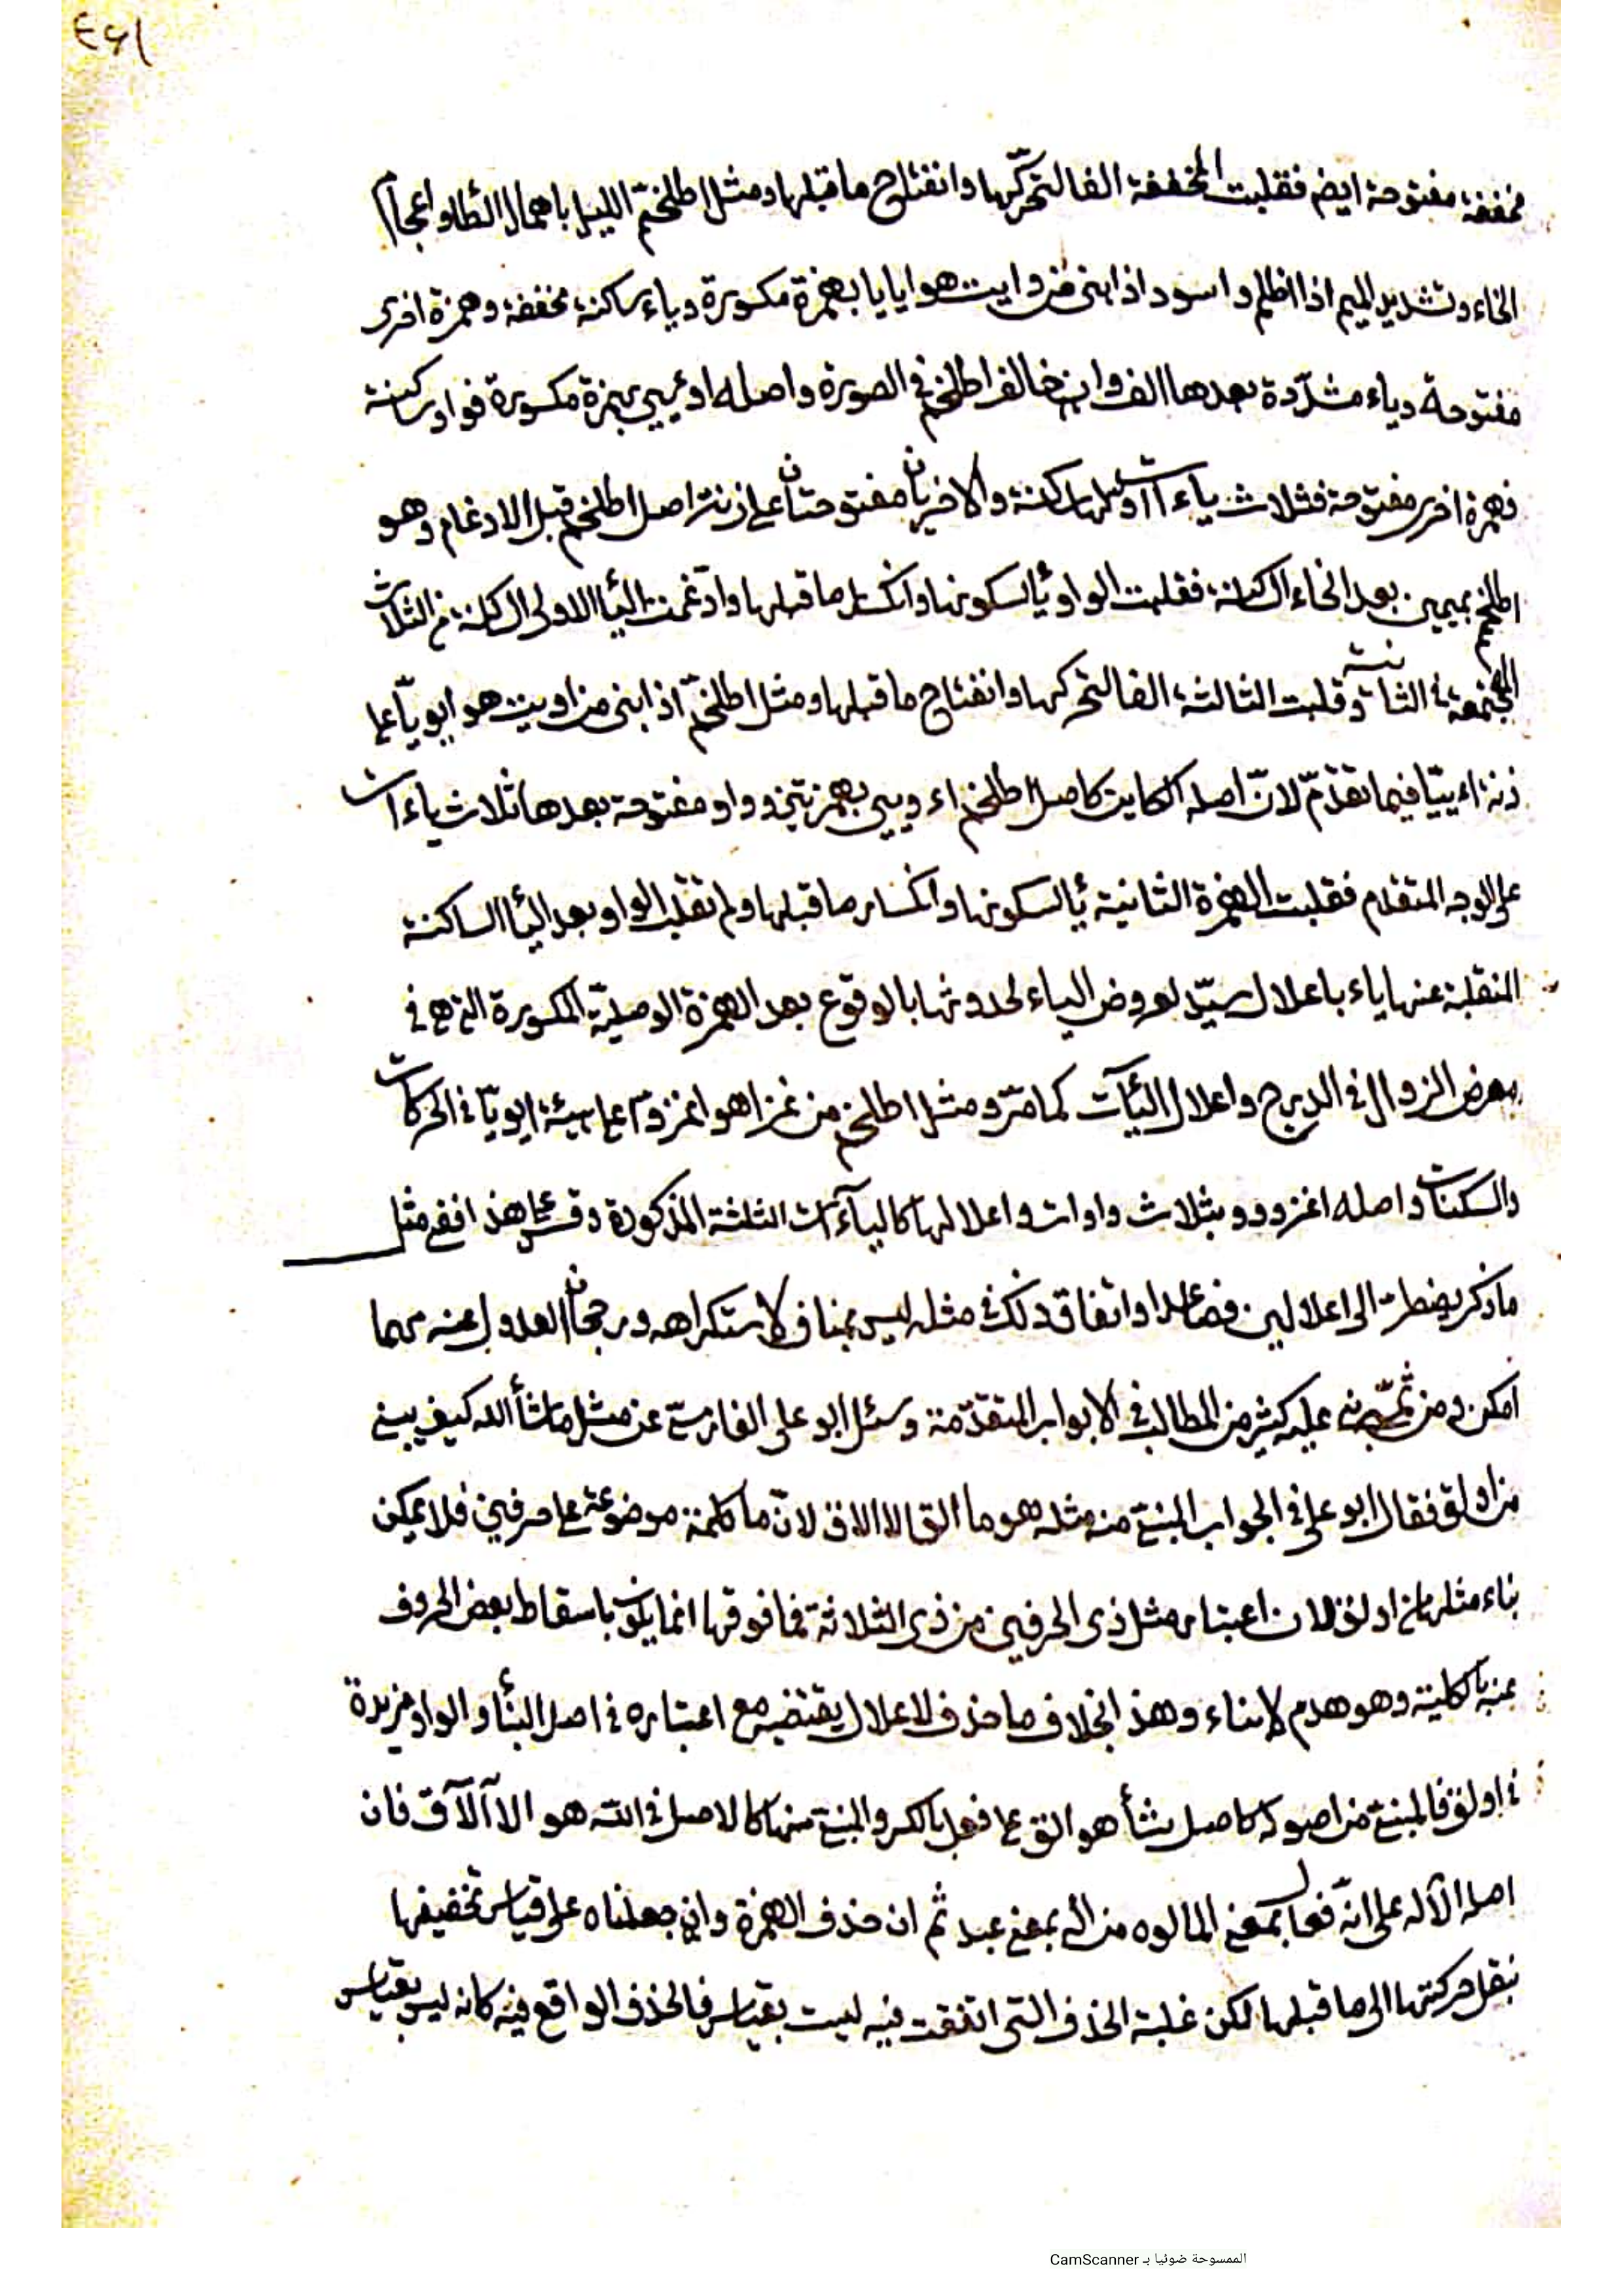 ٤٦١
مخففة مفتوحة ايضم فقلبت المخففة الفا لتحركها وانفتاح ما قبلها ومثل اطلخمّ الليل باهمال الطاء واعجام
الخاء وتشديد الميم اذا اظلم واسود اذا بنى من وايت هو ايايا بهمزة مكسورة وياء ساكنة مخففة وهمزة اخرى
مفتوحة وياء مشدّدة بعدها الف وان خالف اطلخم في الصورة واصله اوءييي بهمزة مكسورة فواو ساكنة
فهمزة اخرى مفتوحة فثلاث ياءات اولها ساكنة والاخيرتان مفتوحتان على زنة اصل اطلخم قبل الادغام وهو
اطلخمم بميمين بعد الخاء الساكنة فقلبت الواو يا لسكونها وانكسار ما قبلها وادّغمت اليا الاولى الساكنة من الثلاث
المجتمعة في الثانية وقلبت الثالثة الفا لتحركها وانفتاح ما قبلها ومثل اطلخمّ اذا بنى من اويت هو ايويّا على
زنة ايييّا فيما تقدّم لانّ اصله الكاين كاصل اطلخم اءويیی بهمزتين وواو مفتوحة بعدها ثلاث ياءات
على الوجه المتقدم فقلبت الهمزة الثانية يا لسكونها وانكسار ما قبلها ولم تقلب الواو بعد اليا الساكنة
المنقلبة عنها ياء باعلال سيّد لعروض الياء لحدوثها بالوقوع بعد الهمزة الوصليّة المكسورة التي هي في
معرض الزوال في الدرج واعلال اليآت كما مرّ ومثل اطلخم من غزا هو اغزوّا على هيئة ايويّا في الحركات
والسكنات واصله اغزووو بثلاث واوات واعلالها كالياءات الثلثة المذكورة وقس على هذا ففي مثل
ما ذكر يضطر الى اعلالين فصاعدا واتفاق ذلك في مثله ليس بمناف لاستكراهه ورجحان العدول عنه مهما
امكن ومن ثمّ عليه كثير من المطالب في الابواب المتقدّمة وسئل ابو على الفارسيّ عن مثل ما شأ الله كيف يبنى
من اولق فقال ابو على في الجواب المبنيّ منه مثله هو ما القَ الالاق لانّ ما كلمة موضوعة على حرفين فلا يمكن
بناء مثلها من اولق لان اعتبار مثل ذى الحرفين من ذى الثلاثة فما فوقها انما يكون باسقاط بعض الحروف
عنه بالكلية وهو هدم لا بناء وهذا بخلاف ما حذف لاعلال يقتضيه مع اعتباره في اصل البنأ والواو مزيدة
في اولق فالمبنيّ من اصوله كاصل شأ هو القَ على فعل بالكسر والمبنيّ منها كالاصل في الله هو الالآق فان
اصله الآله على انّه فعال بمعنى المألوه من اله بمعنى عبد ثم ان حذف الهمزة وان جعلناه على قياس تخفيفها
بنقل حركتها الى ما قبلها لكن غلبة الحذف التى اتفقت فيه ليست بقياس فالحذف الواقع فيه كانه ليس بقياس
الممسوحة ضوئيا بـ CamScanner